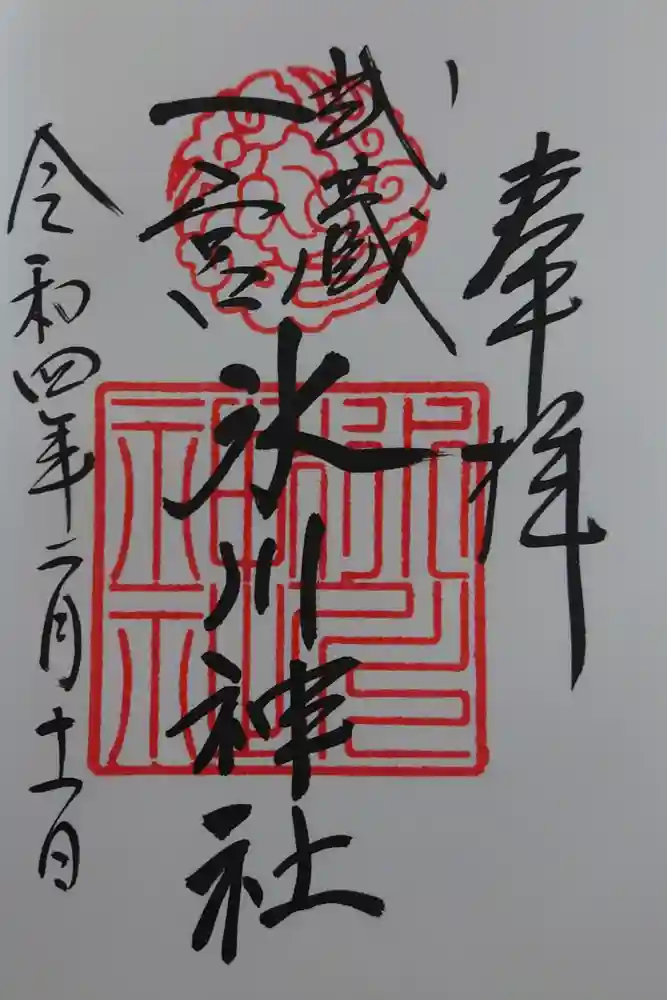 奉拝
武蔵
一宮
氷川神社
令和四年二月十一日